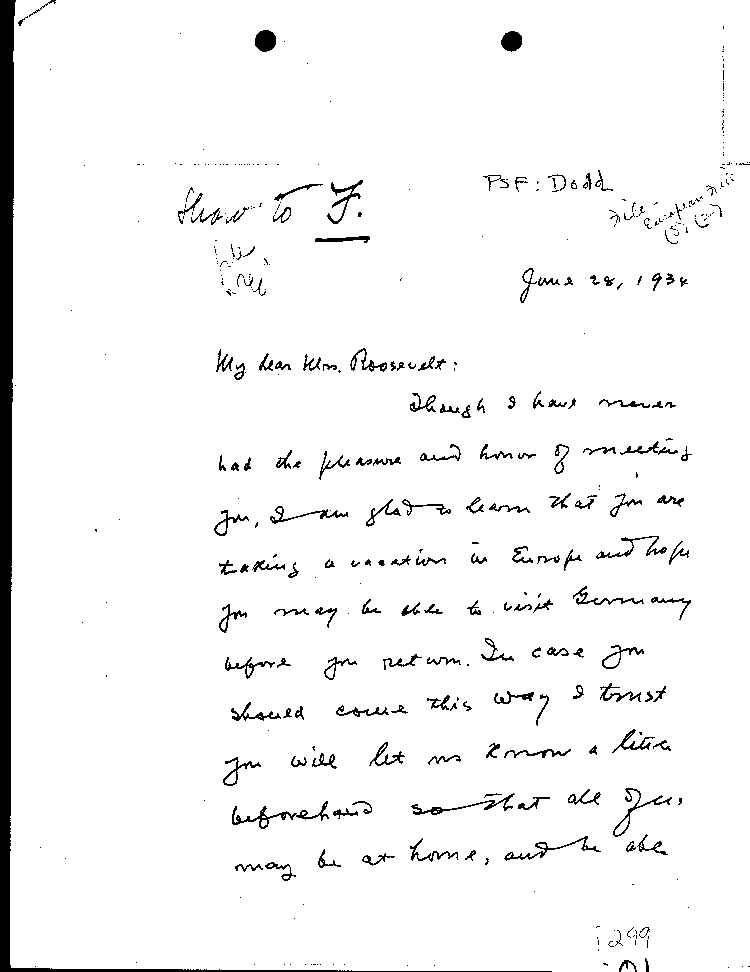 PSF: Dodd
Show to F.
File
European File
June 28, 1934
My dear Mrs. Roosevelt:
Though I have never
had the pleasure and honor of meeting
you, I am glad to learn that you are
taking a vacation in Europe and hope
you may be able to visit Germany
before you return. In case you
should come this way I trust
you will let us know a little
beforehand so that all of us
may be at home, and be able
299